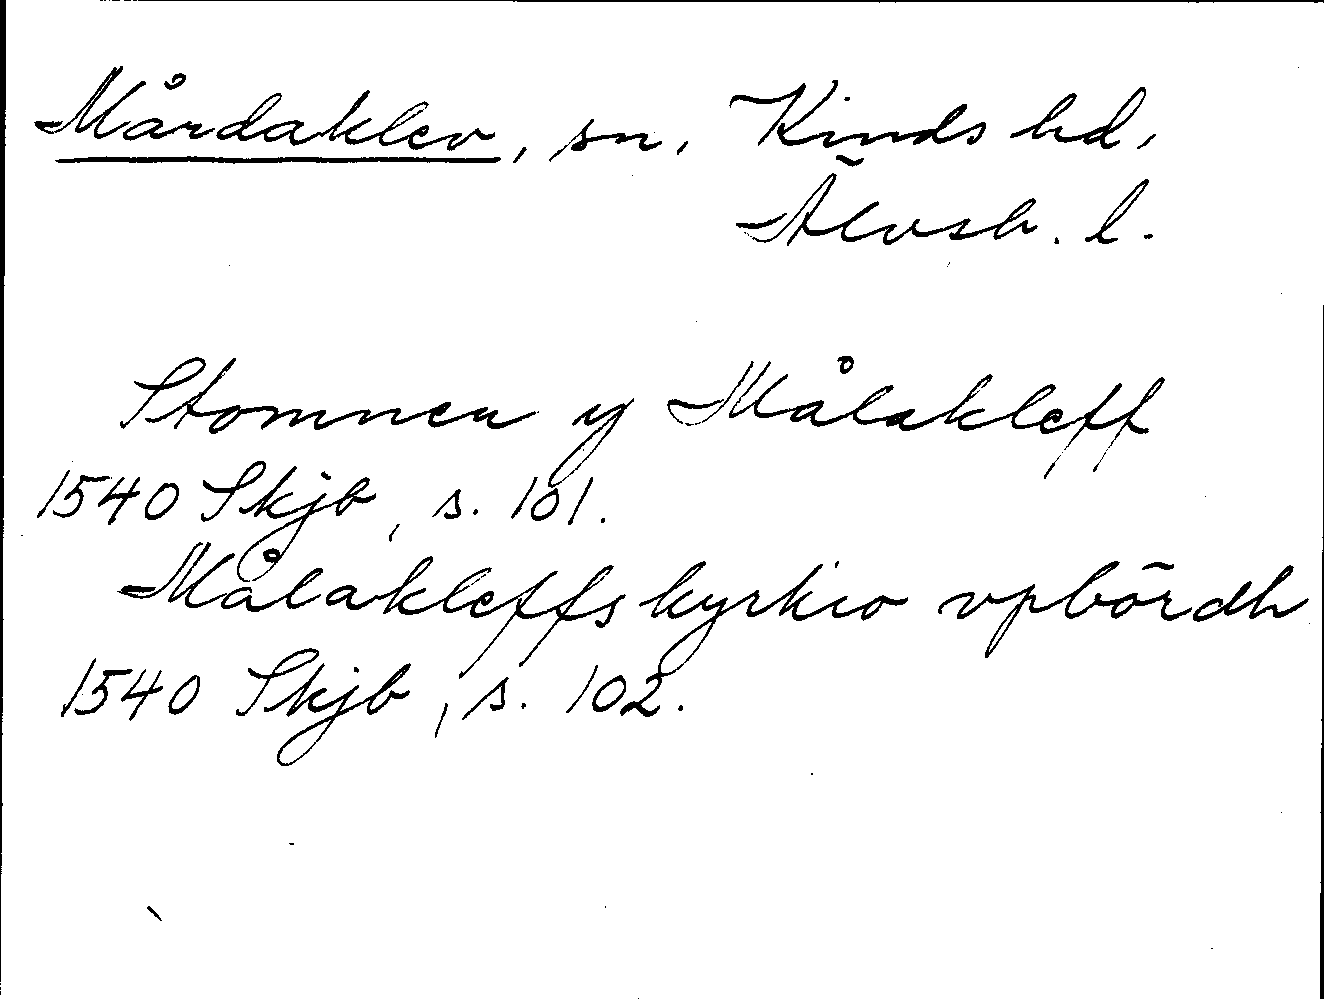 Mårdaklev, sn, Kinds hd,
Älvsb. l.
Stomnen y Målakleff
1540 Skjb, s. 101.
Målakleffs kyrkio vpbördh
1540 Skjb, s. 102.